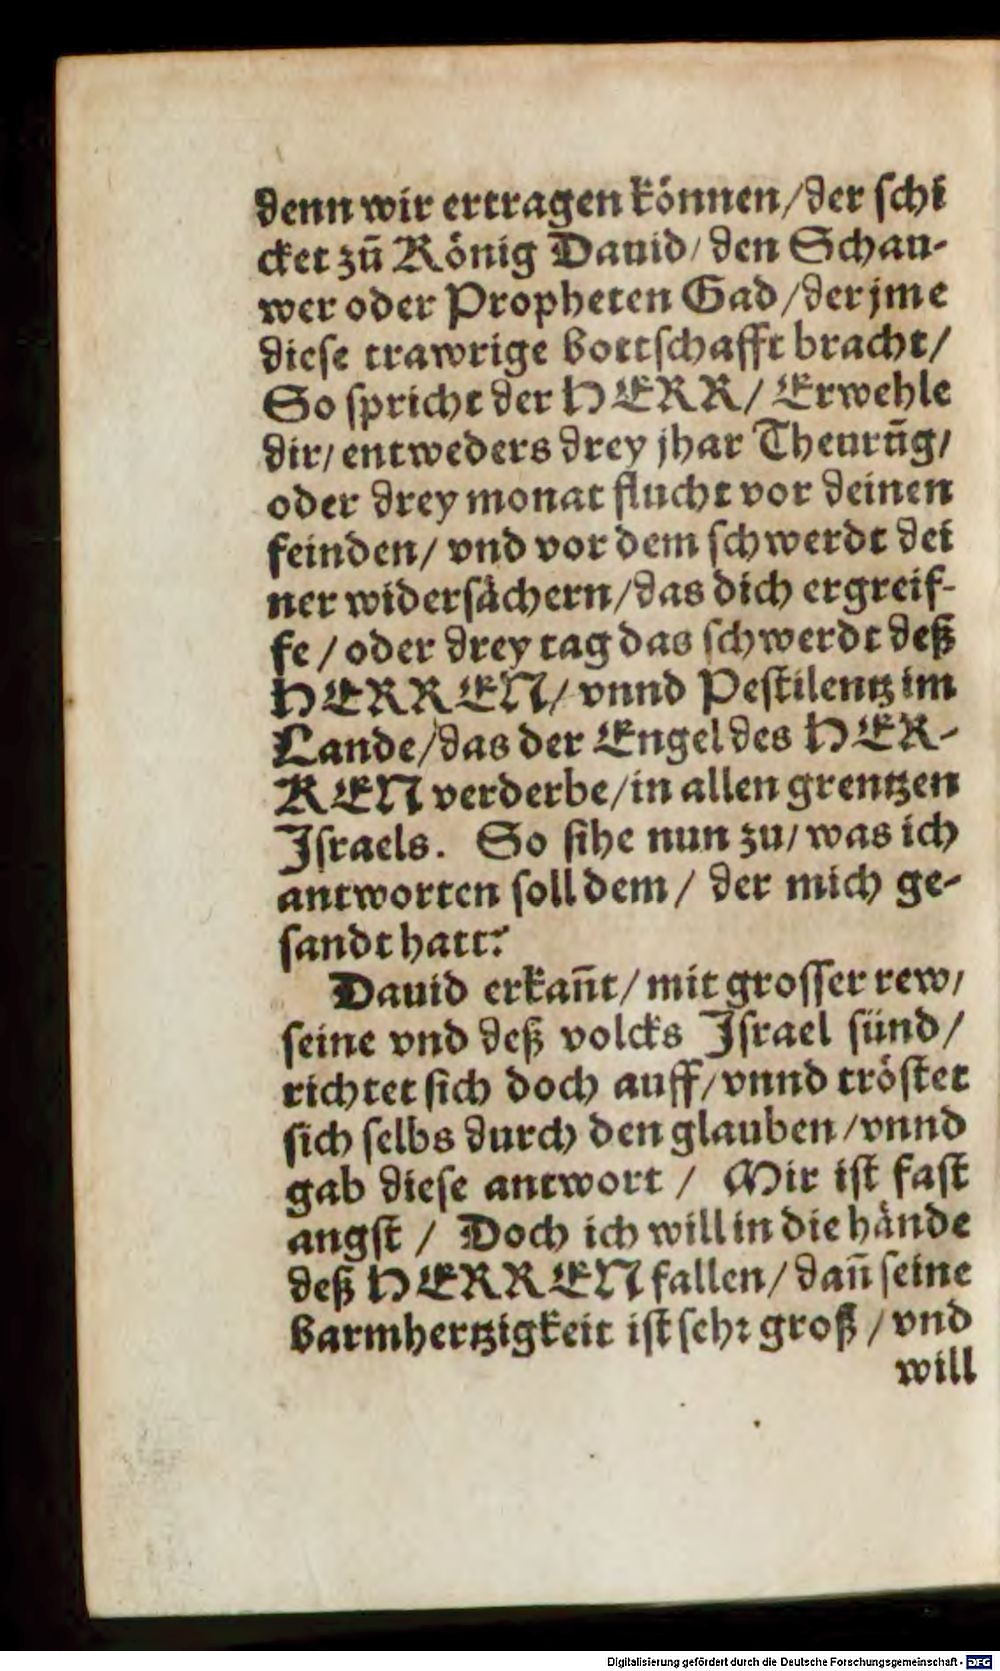 denn wir ertragen können/der schi
cket zuͤ König Dauid/ den Schau-
wer oder Propheten Gad/der jme
diese trawrige bottschafft bracht/
So spricht der HERR/ Erwehle
dir/ entweders drey jhar Theurūg/
oder drey monat flucht vor deinen
feinden/ vnd vor dem schwerdt dei
ner widersächern/das dich ergreif-
fe/oder drey tag das schwerdt deß
HERREN/ vnnd Pestilentz im
Lande/das der Engel des HER-
REN verderbe/in allen grentzen
Israels. So sihe nun zu/ was ich
antworten soll dem/ der mich ge-
sandt hatt?
Dauid erkañt/ mit grosser rew/
seine vnd deß volcks Israel sünd/
richtet sich doch auff/vnnd tröstet
sich selbs durch den glauben/vnnd
gab diese antwort/ Mir ist fast
angst/ Doch ich will in die hände
deß HERREN fallen/ dañ seine
barmhertzigkeit ist sehr groß/vnd
will
Digitalisierung gefördert durch die Deutsche Forschungsgemeinschaft - DFG